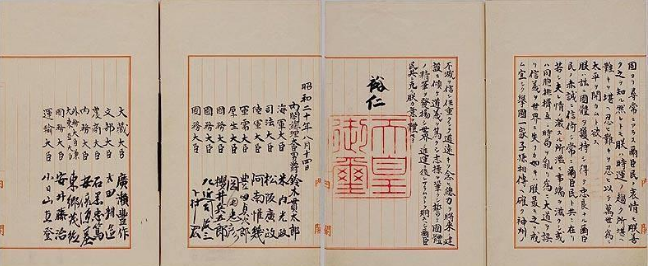 固ヨリ尋常ニアラス爾臣民ノ衷情モ朕善
ク之ヲ知ル然レトモ朕ハ時運ノ趨ク所堪ヘ
難キヲ堪ヘ忍ヒ難キヲ忍ヒ以テ萬世ノ爲ニ
太平ヲ開カムト欲ス
朕ハ茲ニ國體ヲ護持シ得テ忠良ナル爾臣
民ノ赤誠ニ信倚シ常ニ爾臣民ト共ニ在リ
若シ夫レ情ノ激スル所濫ニ事端ヲ滋クシ或
ハ同胞排擠互ニ時局ヲ亂リ爲ニ大道ヲ誤
リ信義ヲ世界ニ失フカ如キハ朕最モ之ヲ戒
ム宜シク擧國一家子孫相傳ヘ確ク神州ノ
不滅ヲ信シ任重クシテ道遠キヲ念ヒ總力ヲ將來ノ建
設ニ傾ケ道義ヲ篤クシ志操ヲ鞏クシ誓テ國體
ノ精華ヲ發揚シ世界ノ進運ニ後レサラムコトヲ期スヘシ爾臣
民其レ克ク朕カ意ヲ體セヨ
裕仁
天皇
御璽
昭和二十年八月十四日
内閣總理大臣男爵 鈴木貫太郎
海軍大臣 米内光政
司法大臣 松阪廣政
陸軍大臣 阿南惟幾
軍需大臣 豊田貞次郎
厚生大臣 岡田忠彦
國務大臣 櫻井兵五郎
國務大臣 左近司政三
國務大臣 下村宏
大藏大臣 廣瀬豊作
文部大臣 太田耕造
農商大臣 石黒忠篤
内務大臣 安倍源基
外務大臣兼大東亞大臣 東郷茂徳
國務大臣 安井藤治
運輸大臣 小日山直登